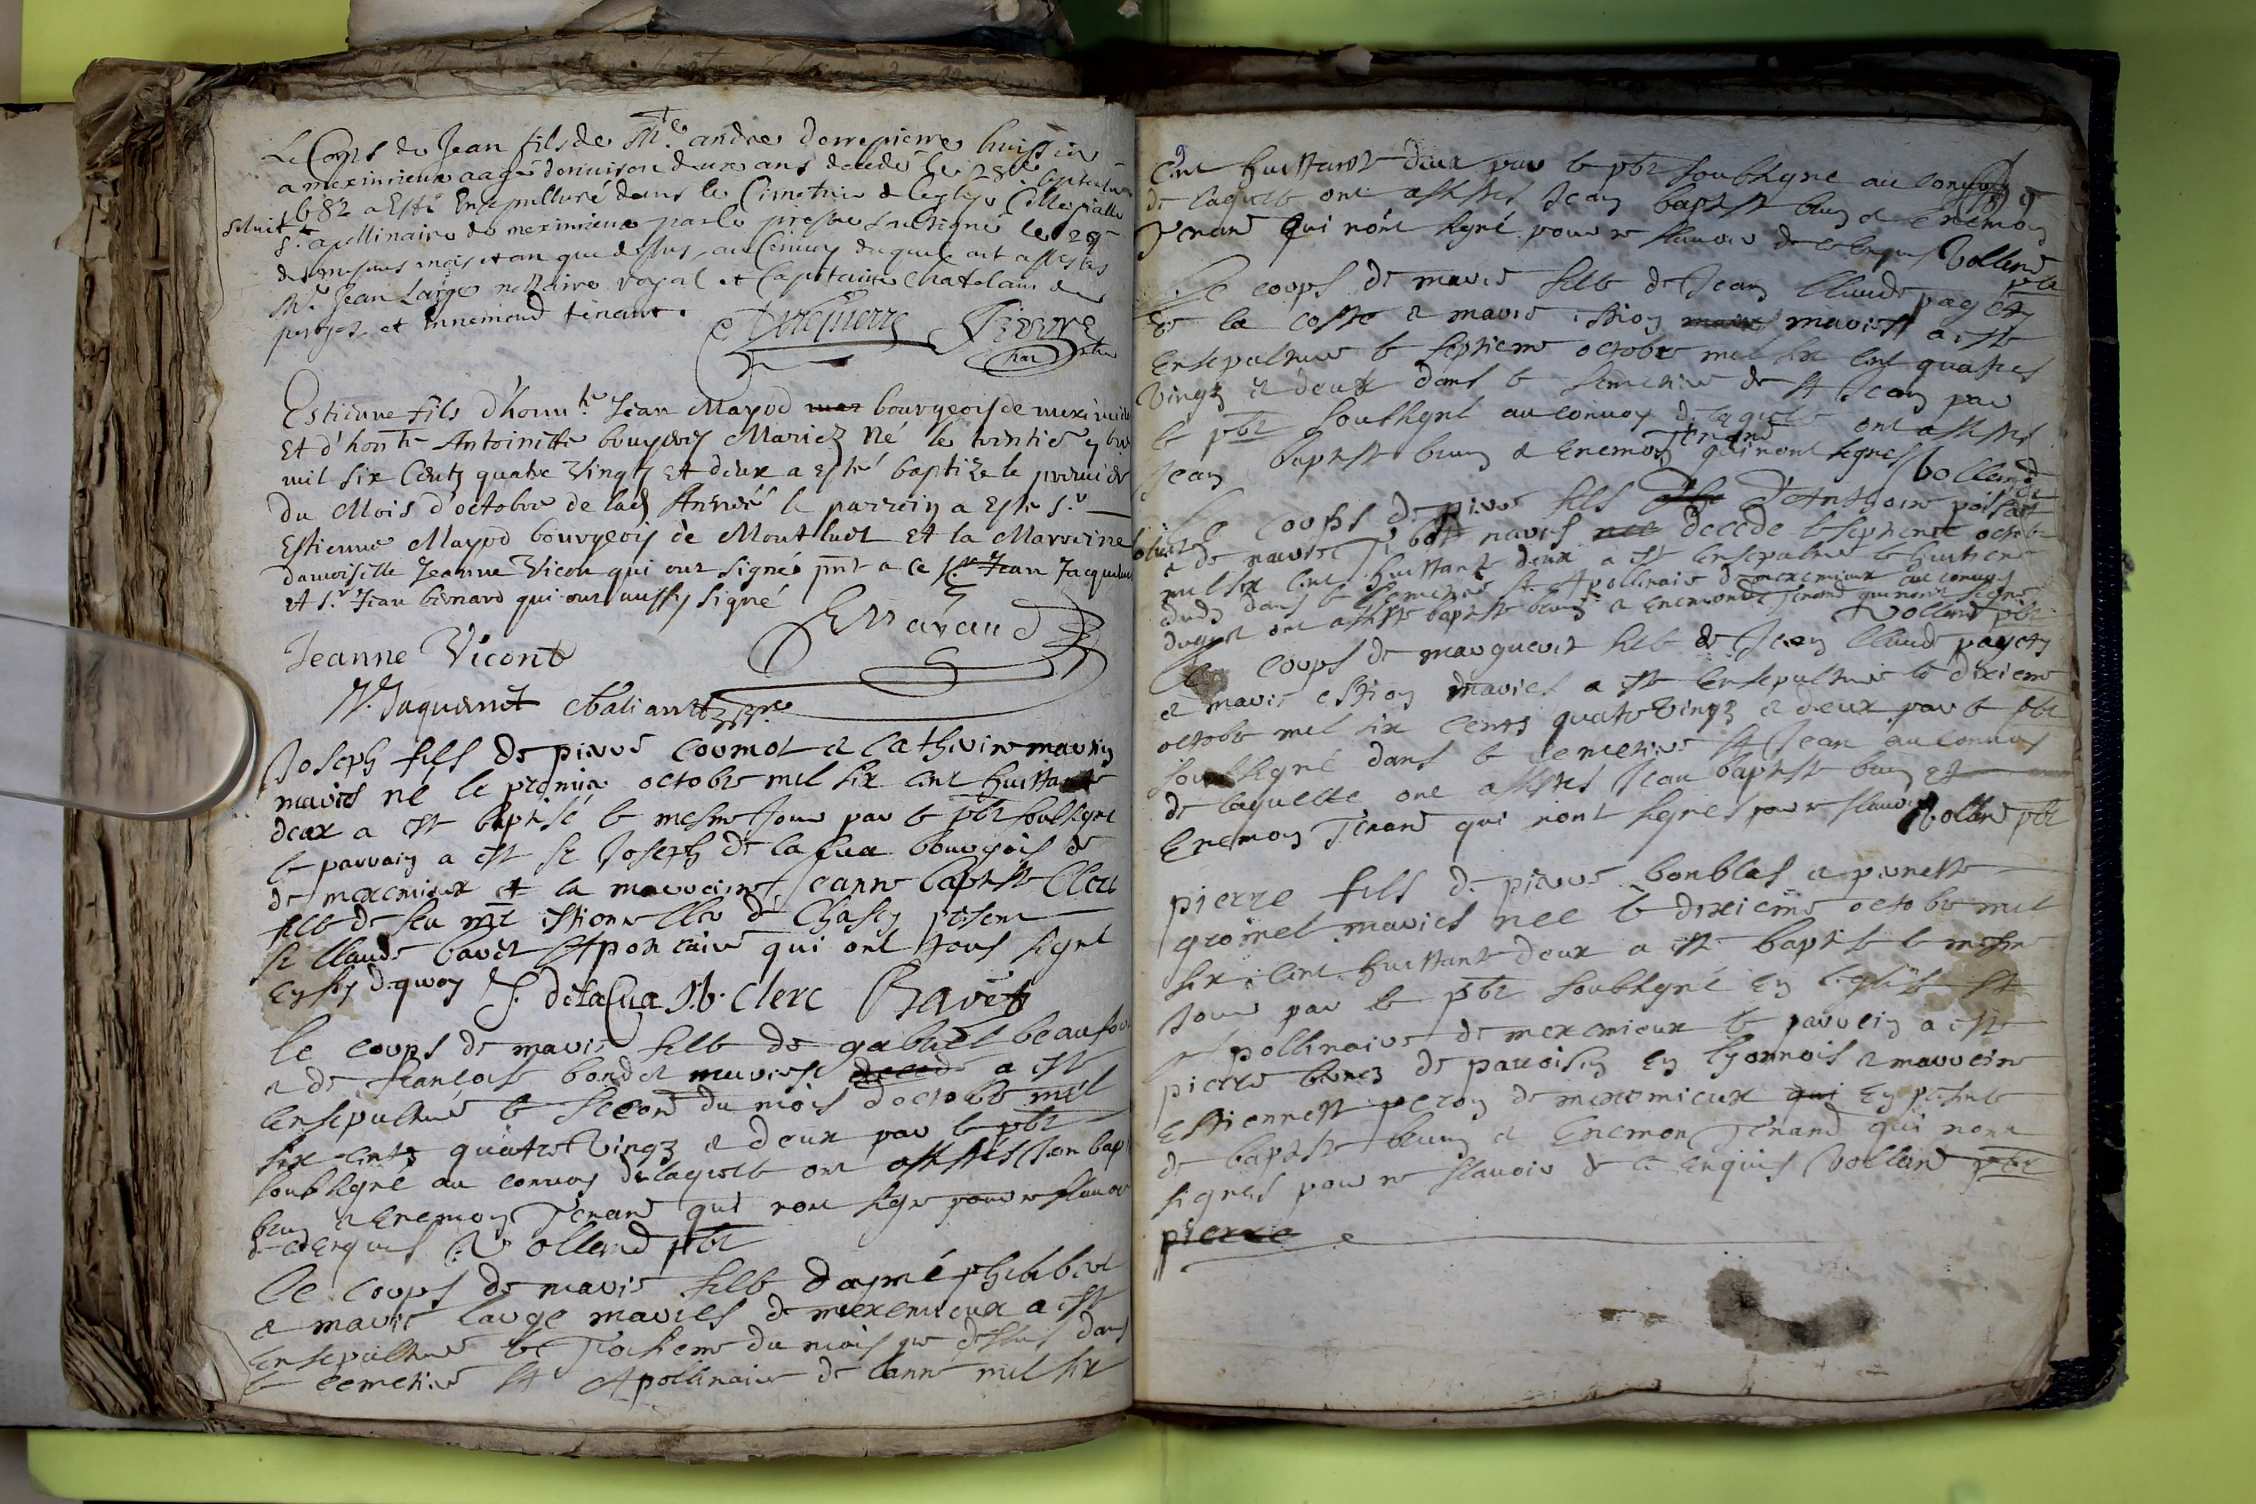 Le Corps de Jean fils de Me andre derrepierre huissier
a meximieux aagé denuiron deux ans decedé le 28e septembre
1682 a Esté Ensepulturé dans le Cimetiere de leglise Collegialle
St apollinaire de meximieux par le prestre soubsigné le 29e
des mesmes mois et an que dessus, au Conuoy duquel ont assistes
Me Jean Large nottaire royal et Capitaine Chatelain de
peroges et Ennemond tenant.
Derrepierre
Estienne fils d'honnble Jean Mayod bourgeois de meximieu
Et d'honte Antoinette bouyeron Mariez Né le trentie 7bre
mil six Centz quatre Vingtz Et deux a esté baptize le premier
du Mois d'octobre de lad Année le parrein a Este Sr
Estienne Mayod bourgeois de Montluel et la Marreine
damoiselle Jeanne Vicon qui ont signé pnt a ce Sr Jean Jaquemet
et Sr Jean bernard qui ont aussy signé
Jeanne Vicont
Jaquemet
Joseph fils de pierre cormot et catherine
maries né le premier octobre mil six cent huittante
deux a est baptisé le mesme Jour par le pbr soubsigne
le parrain a est Sr Joseph de la Cua bourgois de
de meximieux et la marreine Jeanne baptiste Clerc
fille de feu mr estienne Cler de Chasey present
Sr Claude bavet Apoticaire qui ont tous signé
En foy dequoy J. delaCua J.b. Clerc Bavet
Le corps de marie fille de gabriel beaufor
et de francoise bondet mariess decede a est
ensepulture le second du mois doctobre mil
six cents quatre Vingz et deux par le pbr
soubsigné au convoy de laquelle ont assistes Jean bap
brun et Enemon Tenand qui nont signe pour ne scavoir
de ce Enquis Vollend pbr
Le corps de marie fille daymé philibert
et marie large maries de meximieux a est
ensepulture le Troisieme du mois que dessus dans
le cemetiere St Apollinaire de lanne mil six
cent huittante deux par le pbr soubsigne au convoy
de laquelle ont assistes Jean baptiste brun et Enemon
Tenand qui nont signé pour ne scauoir de ce enquis Vollend
pbr
Le corps de marie fille de Jean Claude pagety
de la coste et marie estion maries a este
Ensepulture le septieme octobre mil six cent quatres
Vingz et deux dans le semetiere de St Jean par
le pbr soubsigné au convoy de laquelle ont assistes
Tenand
Jean baptiste brun et Enemon qui nont signes Vollend
pbr
Le corps de pierre fils d'Anthoine poisat
et de maries nee decede le septieme octobre
mil six cent huittante deux a est ensepulture le huitieme
dudt dans le semetiere St Apollinaire de meximieux au convoy
duquel ont assiste baptiste brun et Enemond Tenand qui nont signe
Vollend pbr
Le corps de marguerit fille de Jean Claude pagety
et marie estion maries a este ensepulture le dixieme
octobre mil six cents quatre Vingz et deux par le pbr
soubsigné dans le cemetiere St Jean au convoy
de laquelle ont assistes Jean baptiste brun et
Enemon Tenand qui nont signes pour ne scavoir Vollend pbr
pierre fils de pierre bonblas et pernette
groinel maries nee le dixieme octobre mil
six cent huittante deux a est baptise le mesme
Jour par le pbr soubsigné en leglise St
Apollinaire de meximieux le parrein a este
pierre de en lyonnois et marreine
Estiennette peron de meximieux qui En presence
de baptiste brun et Enemon Tenand qui nont
signes pour ne scauoir de ce enquis Vollend pbr
pierre